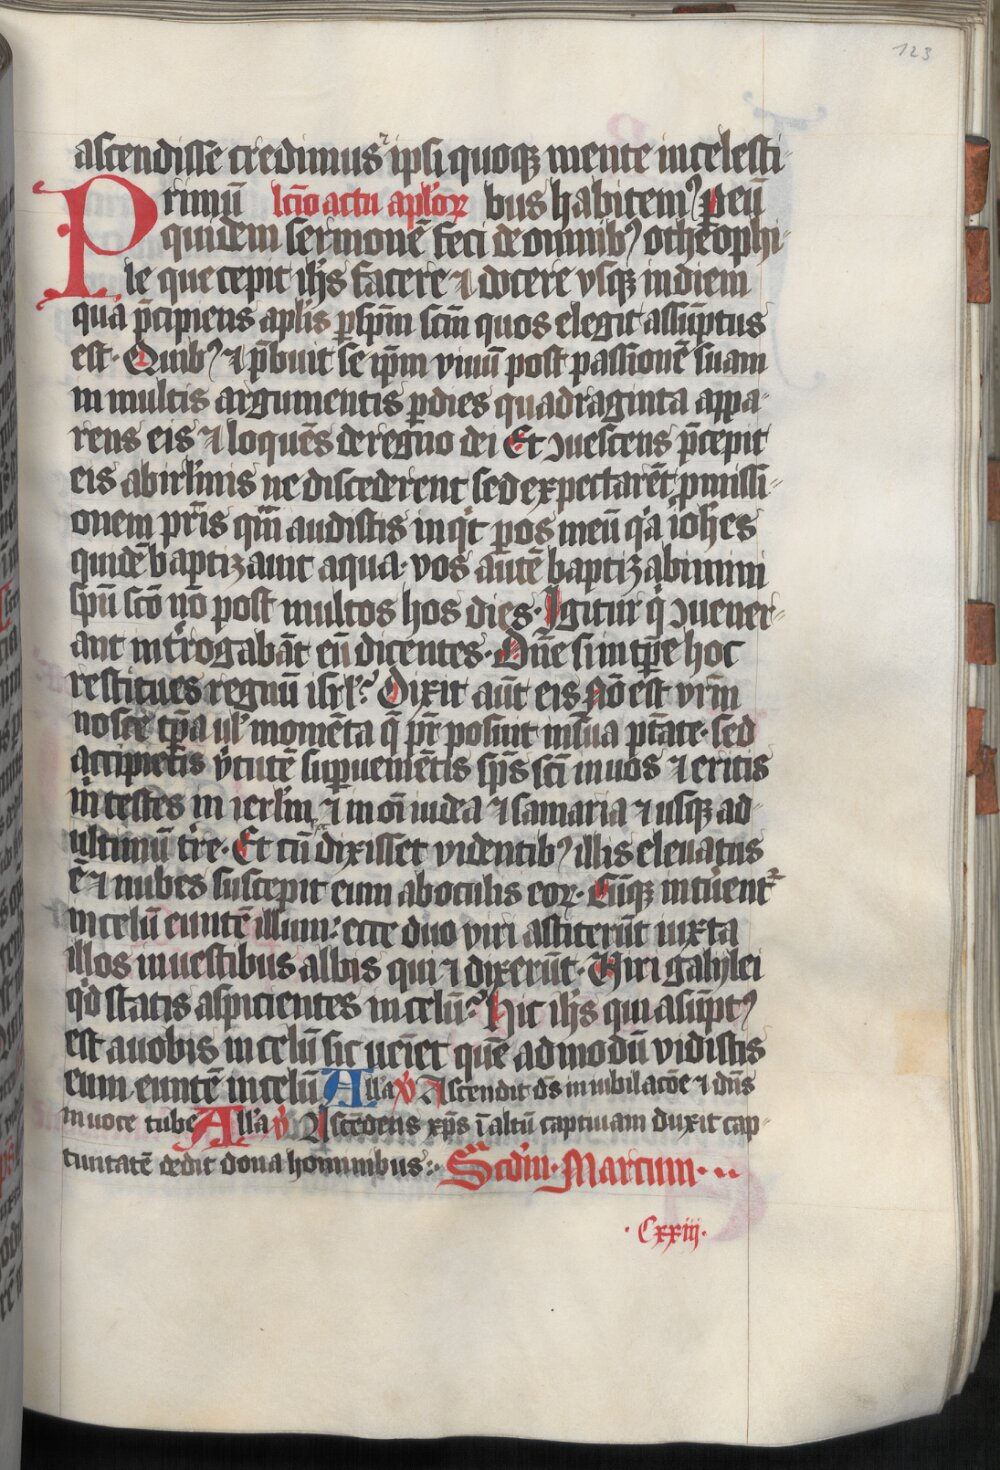 123
ascendisse credimus ipsi quoqꝫ mente in celesti-
Primū lc̄io actū aplo℞ bus habitem᷒ peū
quidem sermonē feci de omnib᷒ o theophi-
le que cepit ih̄s facere ⁊ docere vsqꝫ in diem
qua p̄cipiens aplīs ꝑ sp̄m scm̄ quos elegit assūptus
est· Quib᷒ ⁊ p̄buit se ip̄m viuū post passionē suam
in multis argumentis ꝑ dies quadraginta appa-
rens eis ⁊ loquēs de regno dei Et ꝯuescens p̄cepit
eis ab irl'imis ne discederent sed expectarēt ꝓmissi-
onem pr̄is qm̄ audistis inqͥt ꝑ os meū qͥa ioh̄es
quidē baptizauit aqua· vos autē baptizabimini
spū scō nō post multos hos dies· Igitur qͥ ꝯuener-
ant int̄rogabāt eū dicentes· Dn̄e si in tp̄re hoc
restitues regnū isrl'? Dixit aūt eis Nō est vrm̄
nosce tp̄a ul' momēta q̄ pr̄ posuit in sua ptāte· sed
accipietis v̓tutē suꝑuenietīs sp̄s scī in uos ⁊ eritis
m̍ testes in ierl'm ⁊ in oī iudea ⁊ samaria ⁊ usqꝫ ad
ultimū tr̄e· Et cū dixisset videntib᷒ illis eleuatus
ē ⁊ nubes suscepit eum ab oculis eoꝝ· Cūqꝫ intuent᷑
in celū euntē illum: ecce duo viri astiterūt iuxta
illos in uestibus albis qui ⁊ dixerūt· Viri galylei
qͥd statis aspicientes in celū? Hic ih̄s qui asūpt᷒
est a uobis in celū sic ueīet quē ad modū vidistis
eum euntē in celū All'a ℣ Ascendit ds̄ in iubilacōe ⁊ dn̄s
in uoce tube All'a ℣ Ascēdens xp̄s ī altū captiuam duxit cap-
tiuitatē dedit dona hominibus:· Scdm̄· Marcum·
·Cxxiij·